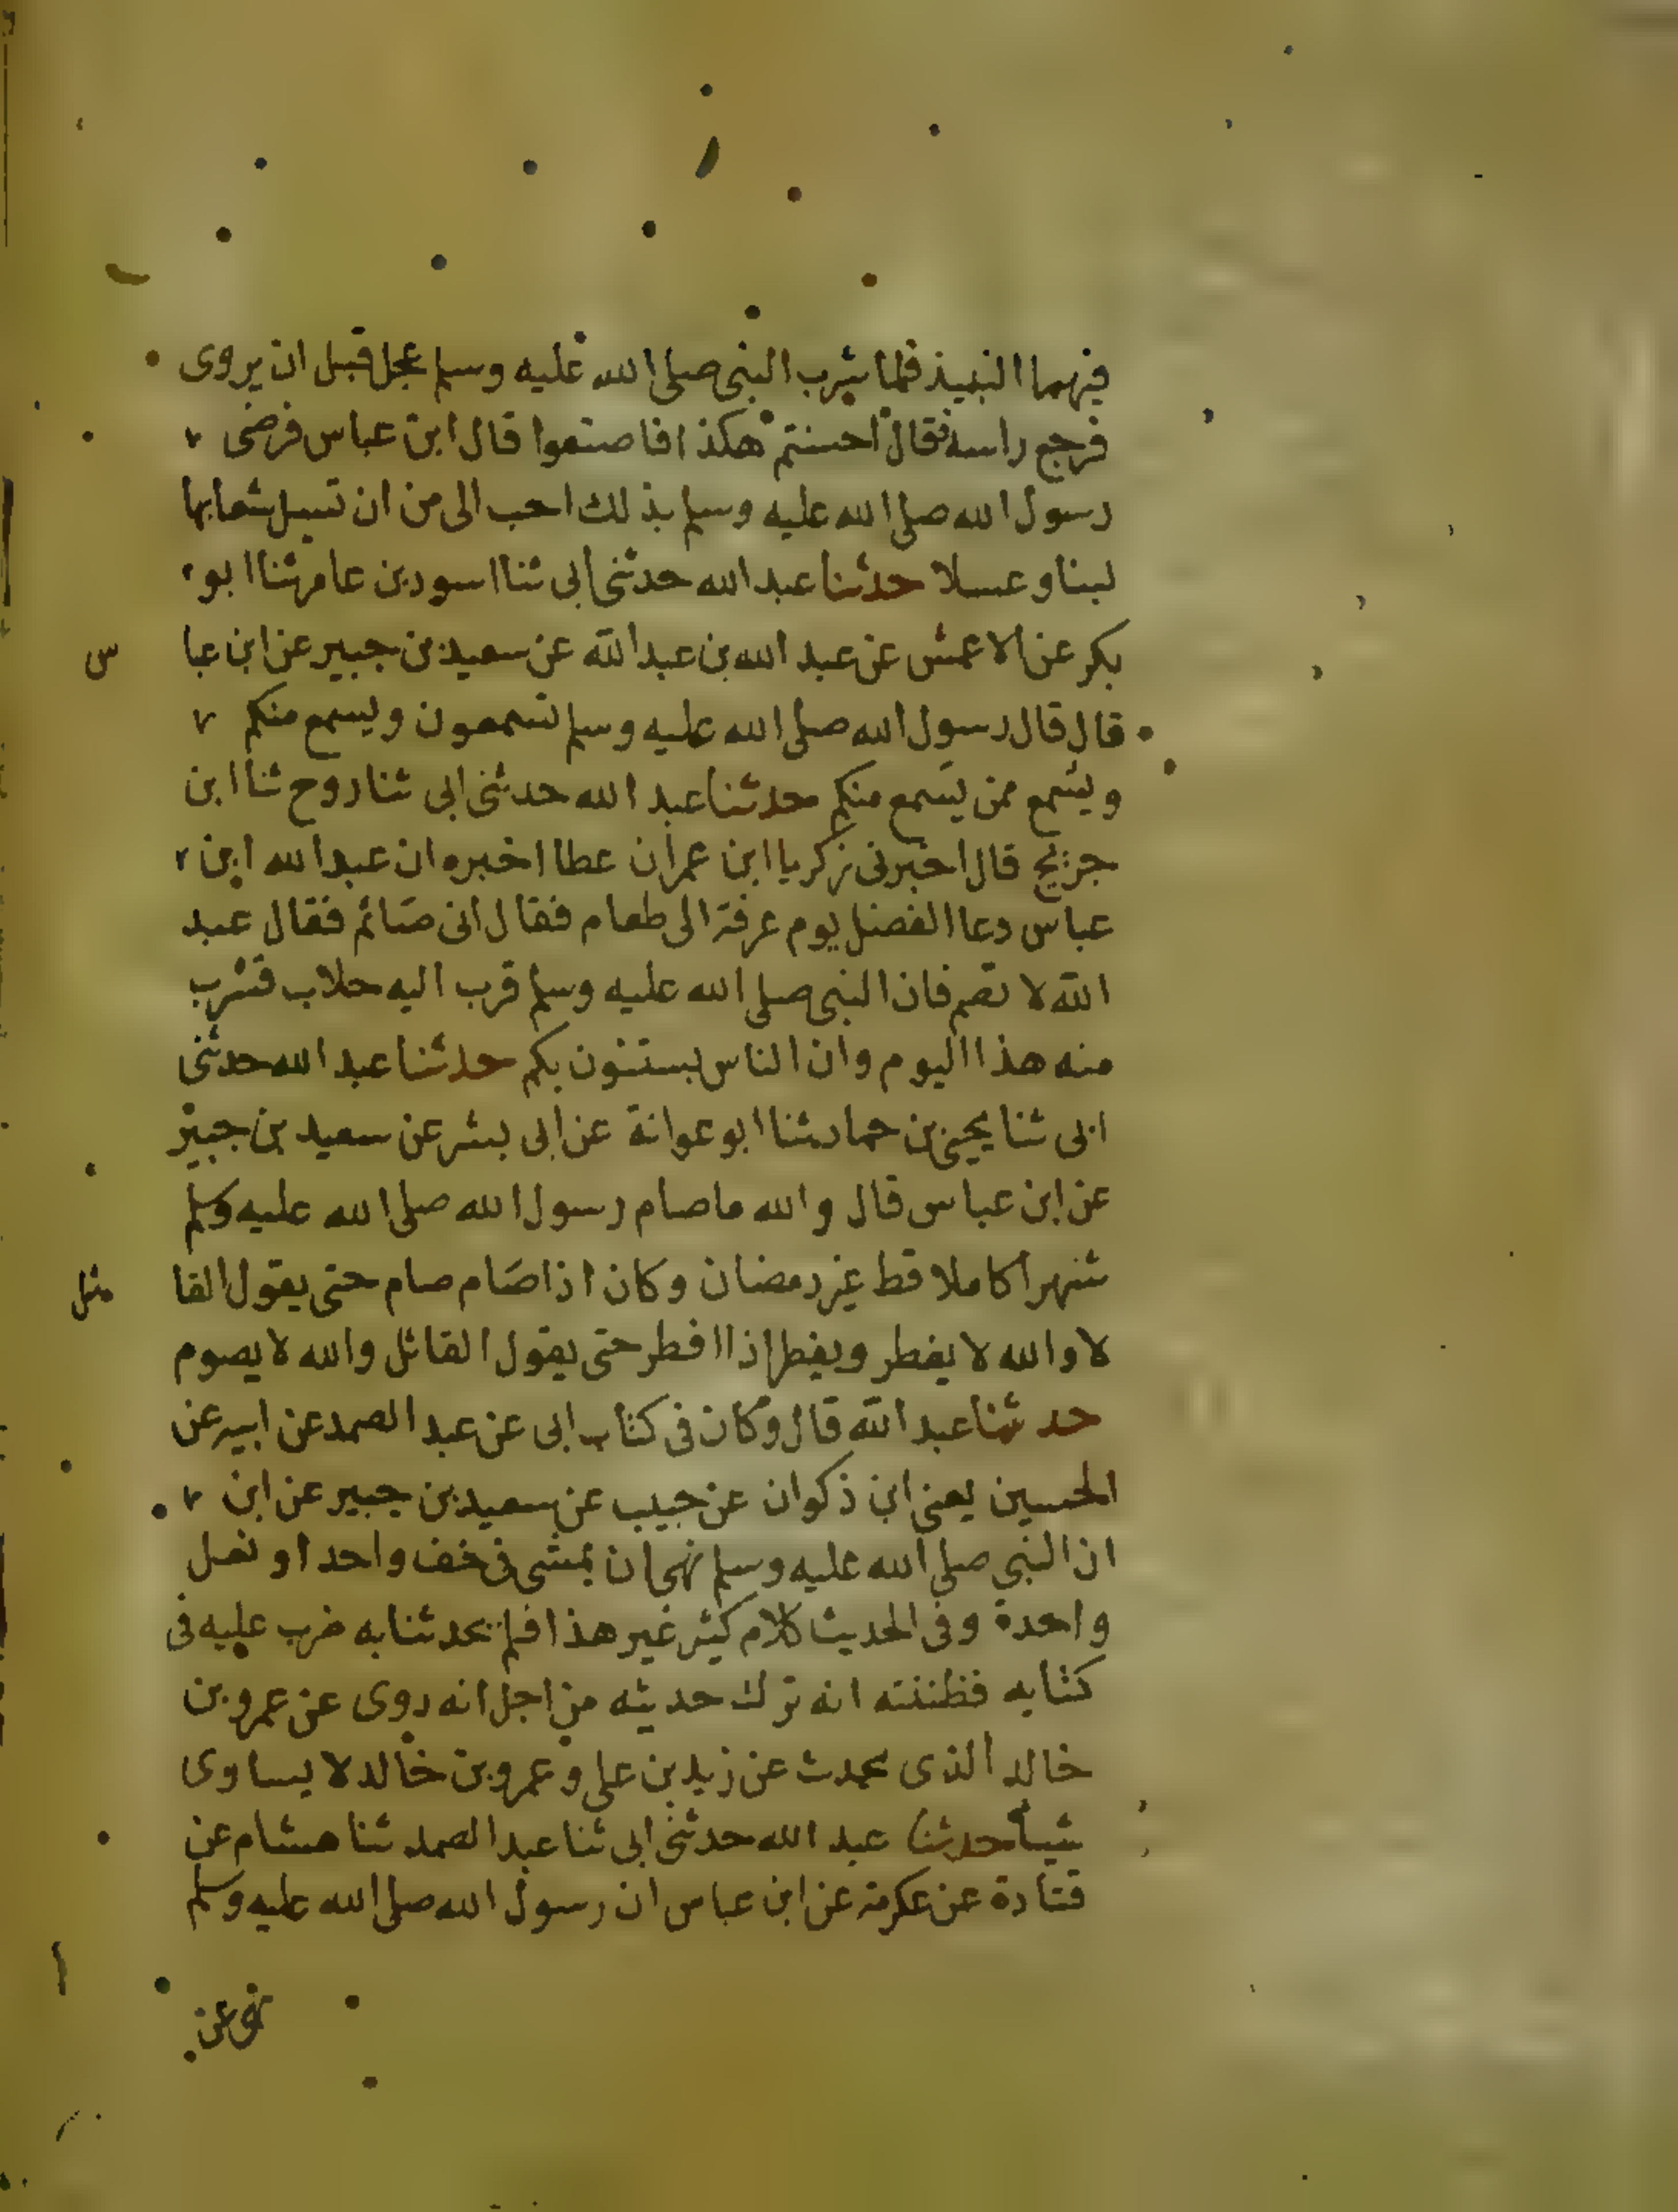 فيهما النبيذ فلما شرب النبي صلى الله عليه وسلم عجل قبل ان يروى
فرجع راسه فقال احسنتم هكذا فاصنعوا قال ابن عباس فرضى
رسول الله صلى الله عليه وسلم بذلك احب الى من ان تسيل شعابها
لبنا وعسلا حدثنا عبد الله حدثنى ابى ثنا اسود بن عامر ثنا ابو
بكر عن الاعمش عن عبد الله بن عبد الله عن سعيد بن جبير عن ابن عبا س
قال قال رسول الله صلى الله عليه وسلم تسمعون ويسمع منكم
ويسمع ممن يسمع منكم حدثنا عبد الله حدثنى ابى ثنا روح ثنا ابن
جريج قال اخبرنى زكريا ابن عمران عطا اخبره ان عبد الله ابن
عباس دعا الفضل يوم عرفة الى طعام فقال انى صائم فقال عبد
الله لا تصم فان النبى صلى الله عليه وسلم قرب اليه حلاب فشرب
منه هذا اليوم وان الناس يستنون بكم حدثنا عبد الله حدثنى
ابى ثنا يحيى بن حماد ثنا ابو عوانة عن ابى بشر عن سعيد بن جبير
عن ابن عباس قال والله ما صام رسول الله صلى الله عليه وسلم
شهرا كاملا قط غير رمضان وكان اذا صام صام حتى يقول القا ئل
لا والله لا يفطر ويفطر اذا افطر حتى يقول القائل والله لا يصوم
حدثنا عبد الله قال وكان فى كتاب ابى عن عبد الصمد عن ابيه عن
الحسين يعنى ابن ذكوان عن حبيب عن سعيد بن جبير عن ابن
ان النبى صلى الله عليه وسلم نهى ان يمشى فى خف واحد او نعل
واحدة وفى الحديث كلام كثير غير هذا فلم يحدثنا به ضرب عليه فى
كتابه فظننته انه ترك حديثه من اجل انه روى عن عمرو بن
خالد الذى يحدث عن زيد بن على وعمرو بن خالد لا يساوى
شيأ حدثنا عبد الله حدثنى ابى ثنا عبد الصمد ثنا هشام عن
قتادة عن عكرمة عن ابن عباس ان رسول الله صلى الله عليه وسلم
نهى عن